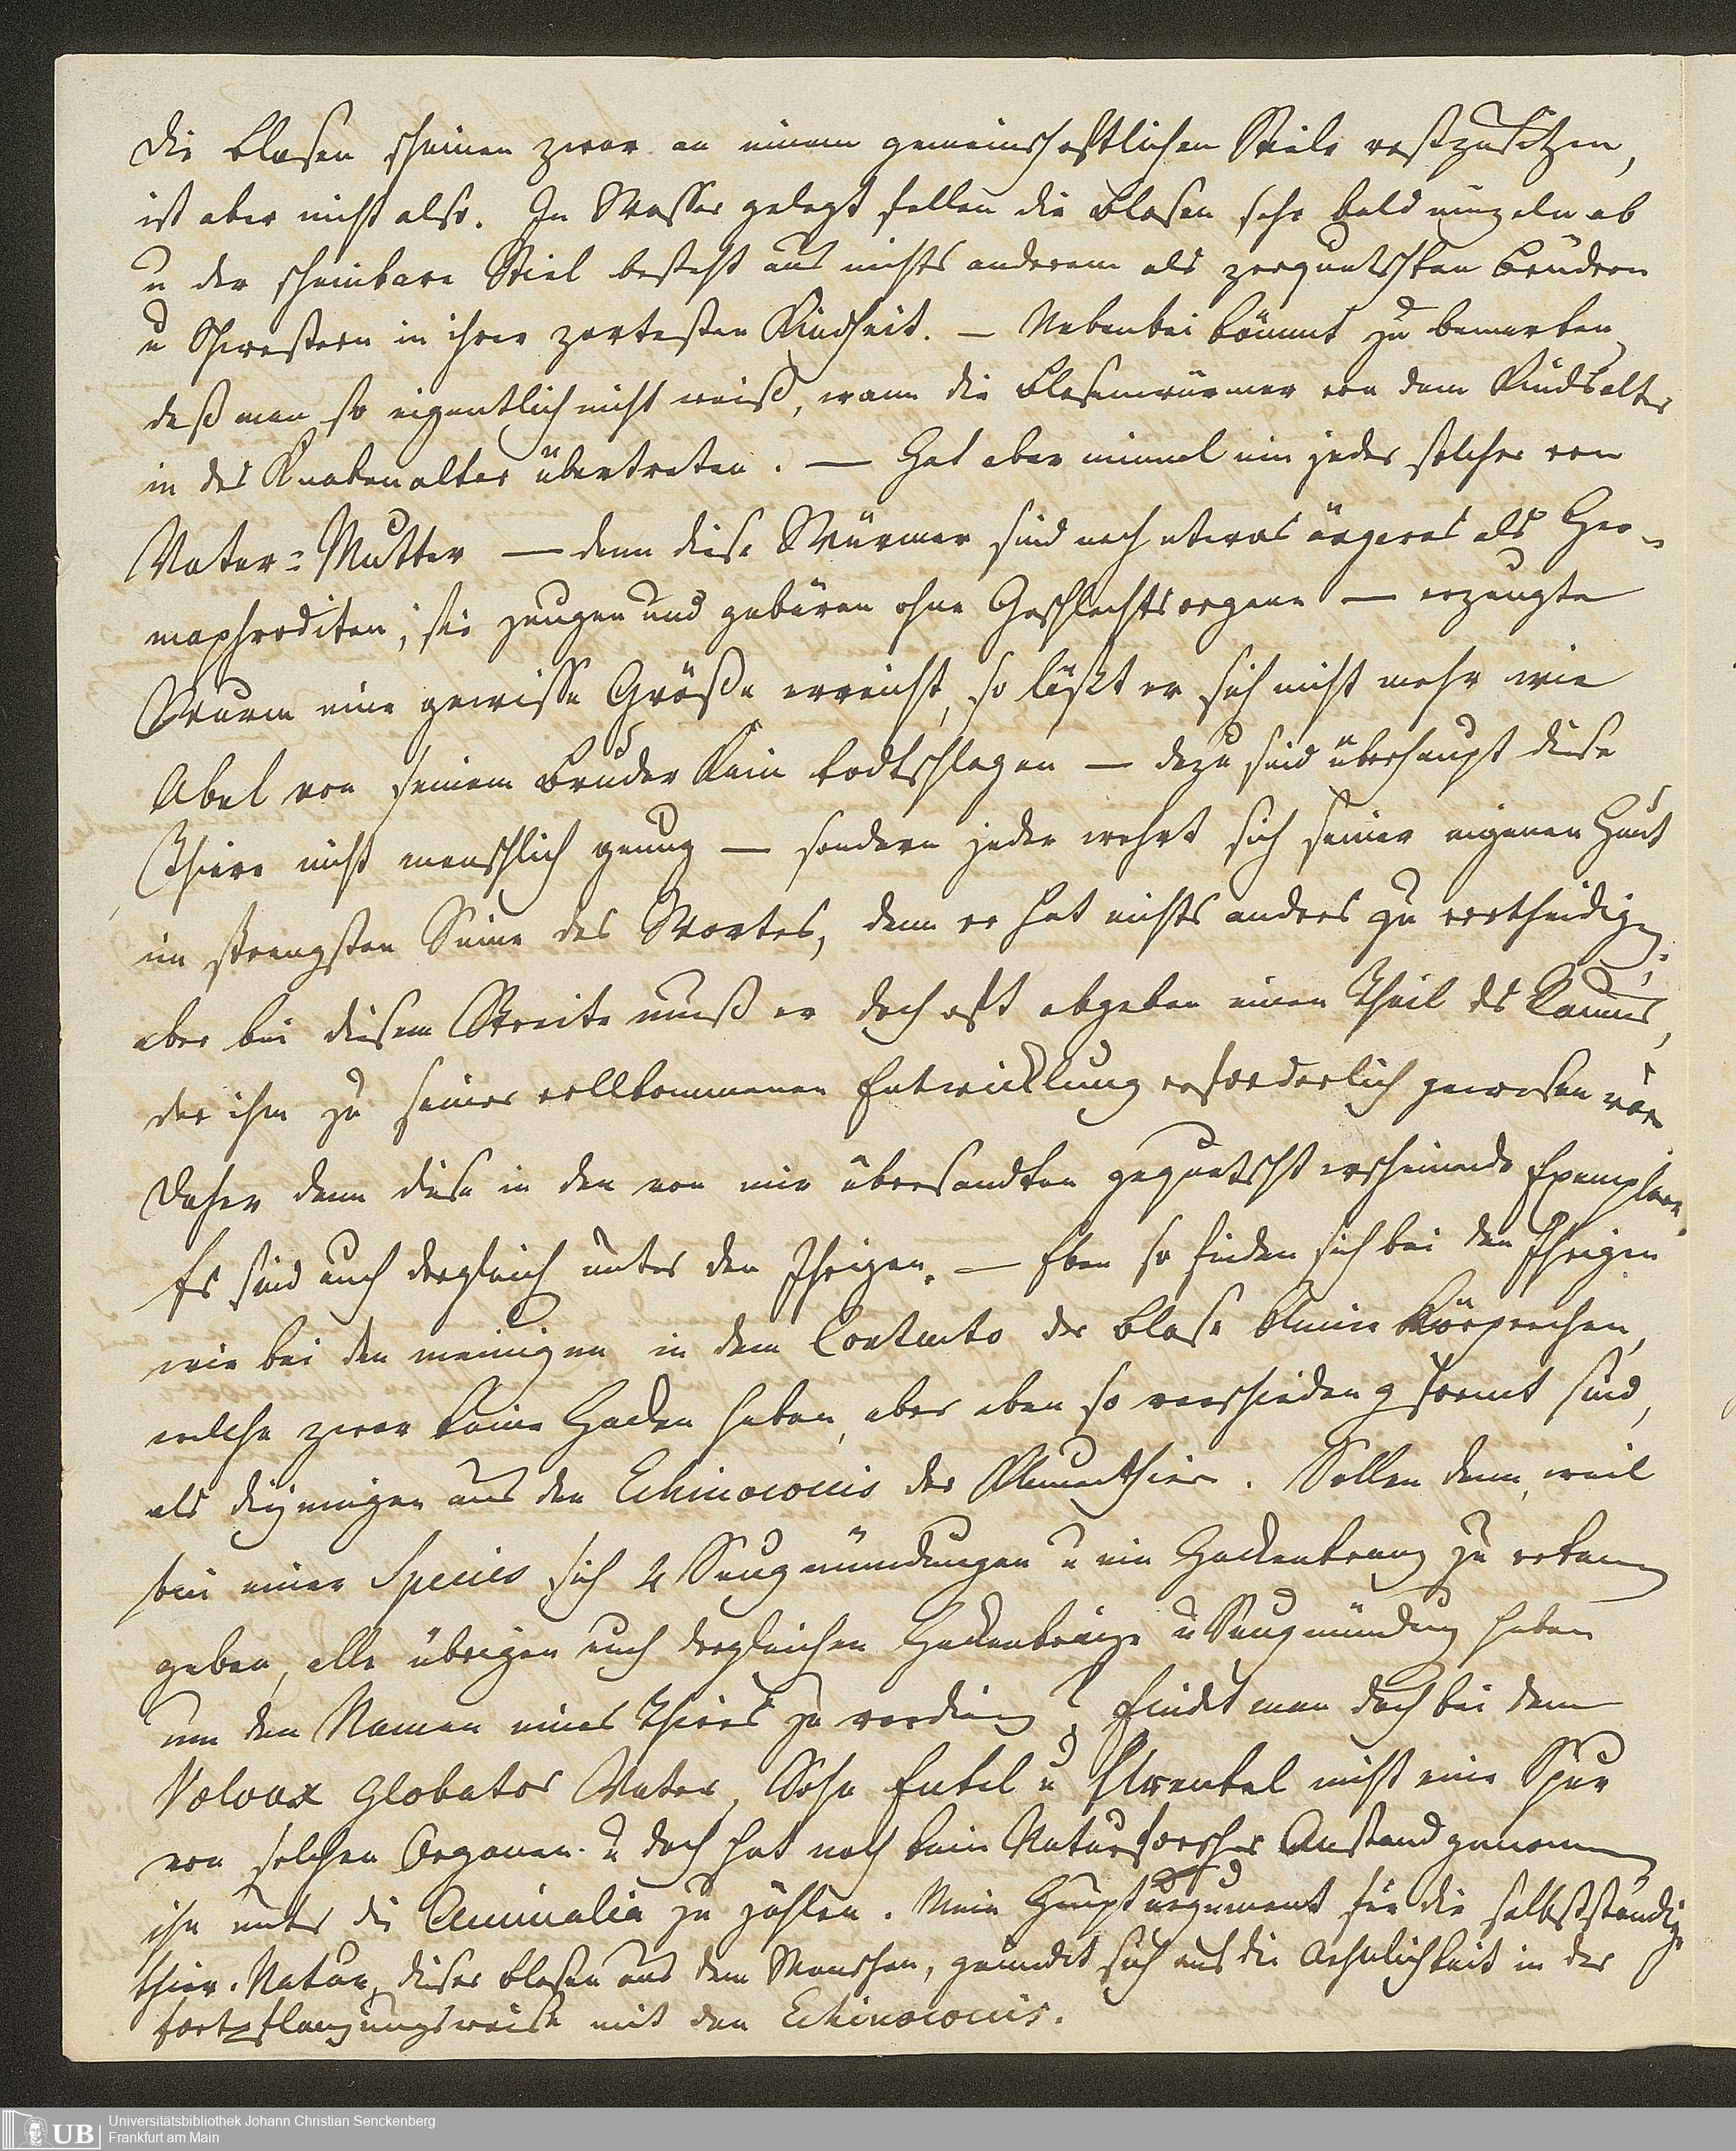 Die Blasen scheinen zwar an einem gemeinschaftlichen Stiele festzusitzen,
ist aber nicht also. In Wasser gelegt fallen die Blasen sehr bald einzeln ab
u der scheinbare Stiel besteht aus nichts anderem als zerquetschten Brüdern
u Schwestern in ihrer zartesten Kindheit. — Nebenbei kömmt zu bemerken,
daß man so eigentlich nicht weiß, wann die Blasenwürmer von dem Kindsalter
in das Knabenalter übertreten. — Hat aber einmal ein jeder solcher von
Vater-Mutter — denn diese Würmer sind noch etwas ärgeres als Her-
maphroditen; sie zeugen und gebären ohne Geschlechtsorgane — erzeugte
Wurm eine gewisse Größe erreicht, so läßt er sich nicht mehr wie
Abel von seinem Bruder Kain todtschlagen — dazu sind überhaupt diese
Thiere nicht menschlich genug — sondern jeder wehrt sich seiner eigenen Haut
im strengsten Sinne des Wortes, denn er hat nichts anders zu vertheidigen;
aber bei diesem Streite muß er doch oft abgeben einen Theil des Raums,
der ihm zu seiner vollkommenen Entwicklung erforderlich gewesen wäre
Daher denn diese in den von mir übersandten gequetscht erscheinende Exemplare.
Es sind auch dergleich unter den Ihrigen. — Eben so finden sich bei den Ihrigen
wie bei den meinigen in dem Contento der Blase kleine Körperchen,
welche zwar keine Hacken haben, aber eben so verschieden geformt sind,
als diejenigen aus den Echinococcis der Thiere. Sollen denn, weil
bei einer Species sich 4 Saugmündungen u ein Hackenkranz zu erkennen
geben, alle übrigen auch dergleichen Hackenkränze u Saugmündung haben
um den Namen eines Thieres zu verdienen? Findet man doch bei dem
Volvox Globator Vater, Sohn Enkel u Urenkel nicht eine Spur
von solchen Organen. u doch hat noch kein Naturforscher Anstand genommen
ihn unter die Animalia zu zählen. Mein Hauptargument für die selbstständige
thier. Natur dieser Blasen aus dem Menschen, gründet sich auf die Aehnlichkeit in der
Fortpflanzungsweise mit den Echinococcis.
Universitätsbibliothek Johann Christian Senckenberg
Frankfurt am Main
UB